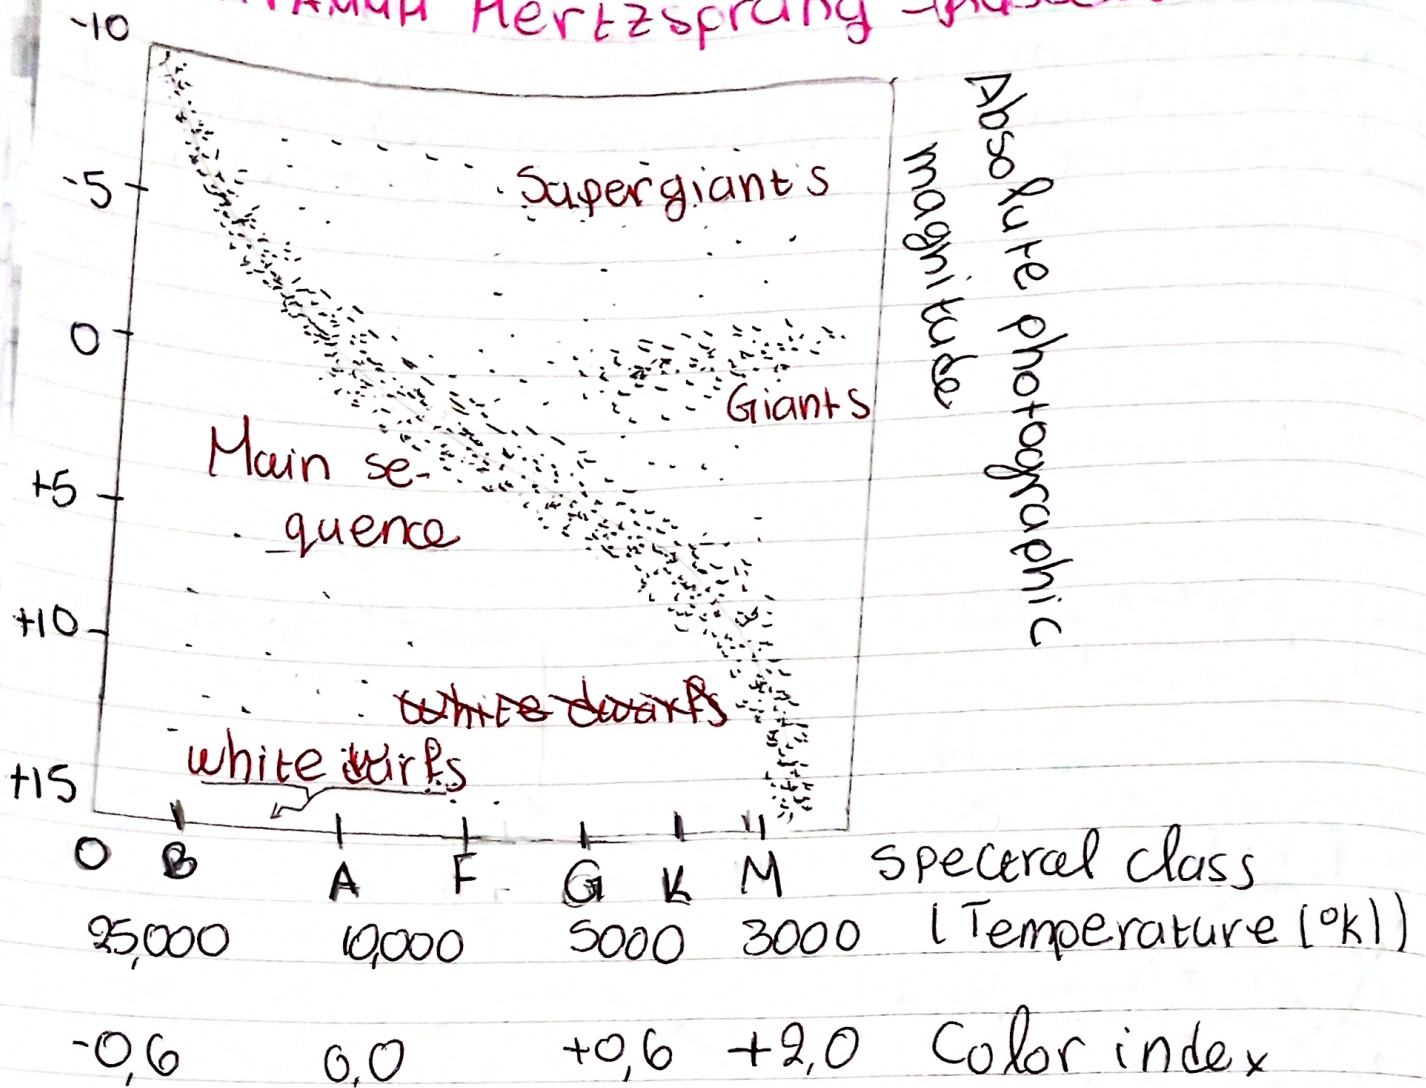 Hertzsprung
-10
-5
0
+5
+10
+15
Supergiants
Giants
Main se-
quence
white dwarfs
white
Absolute photographic
magnitude
O B A F G K M spectral class
25,000 10,000 5000 3000 (Temperature (°k))
-0,6 0,0 +0,6 +2,0 Color index